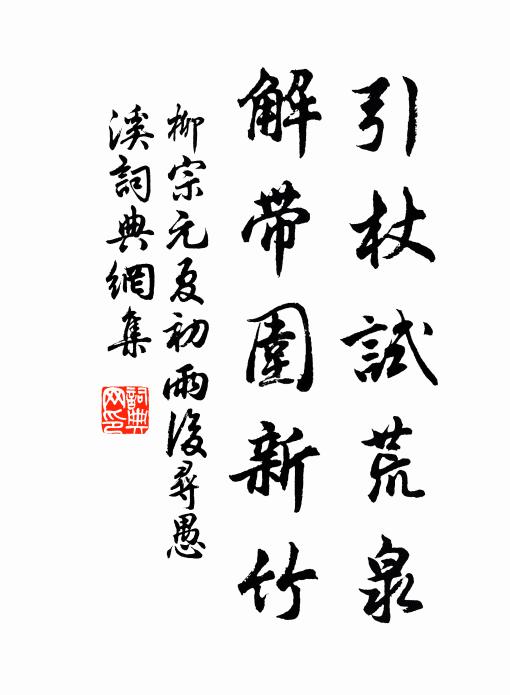 引杖試荒泉
解帶圍新竹
柳宗元夏初雨後尋愚
溪詞典網集
詞典
网印